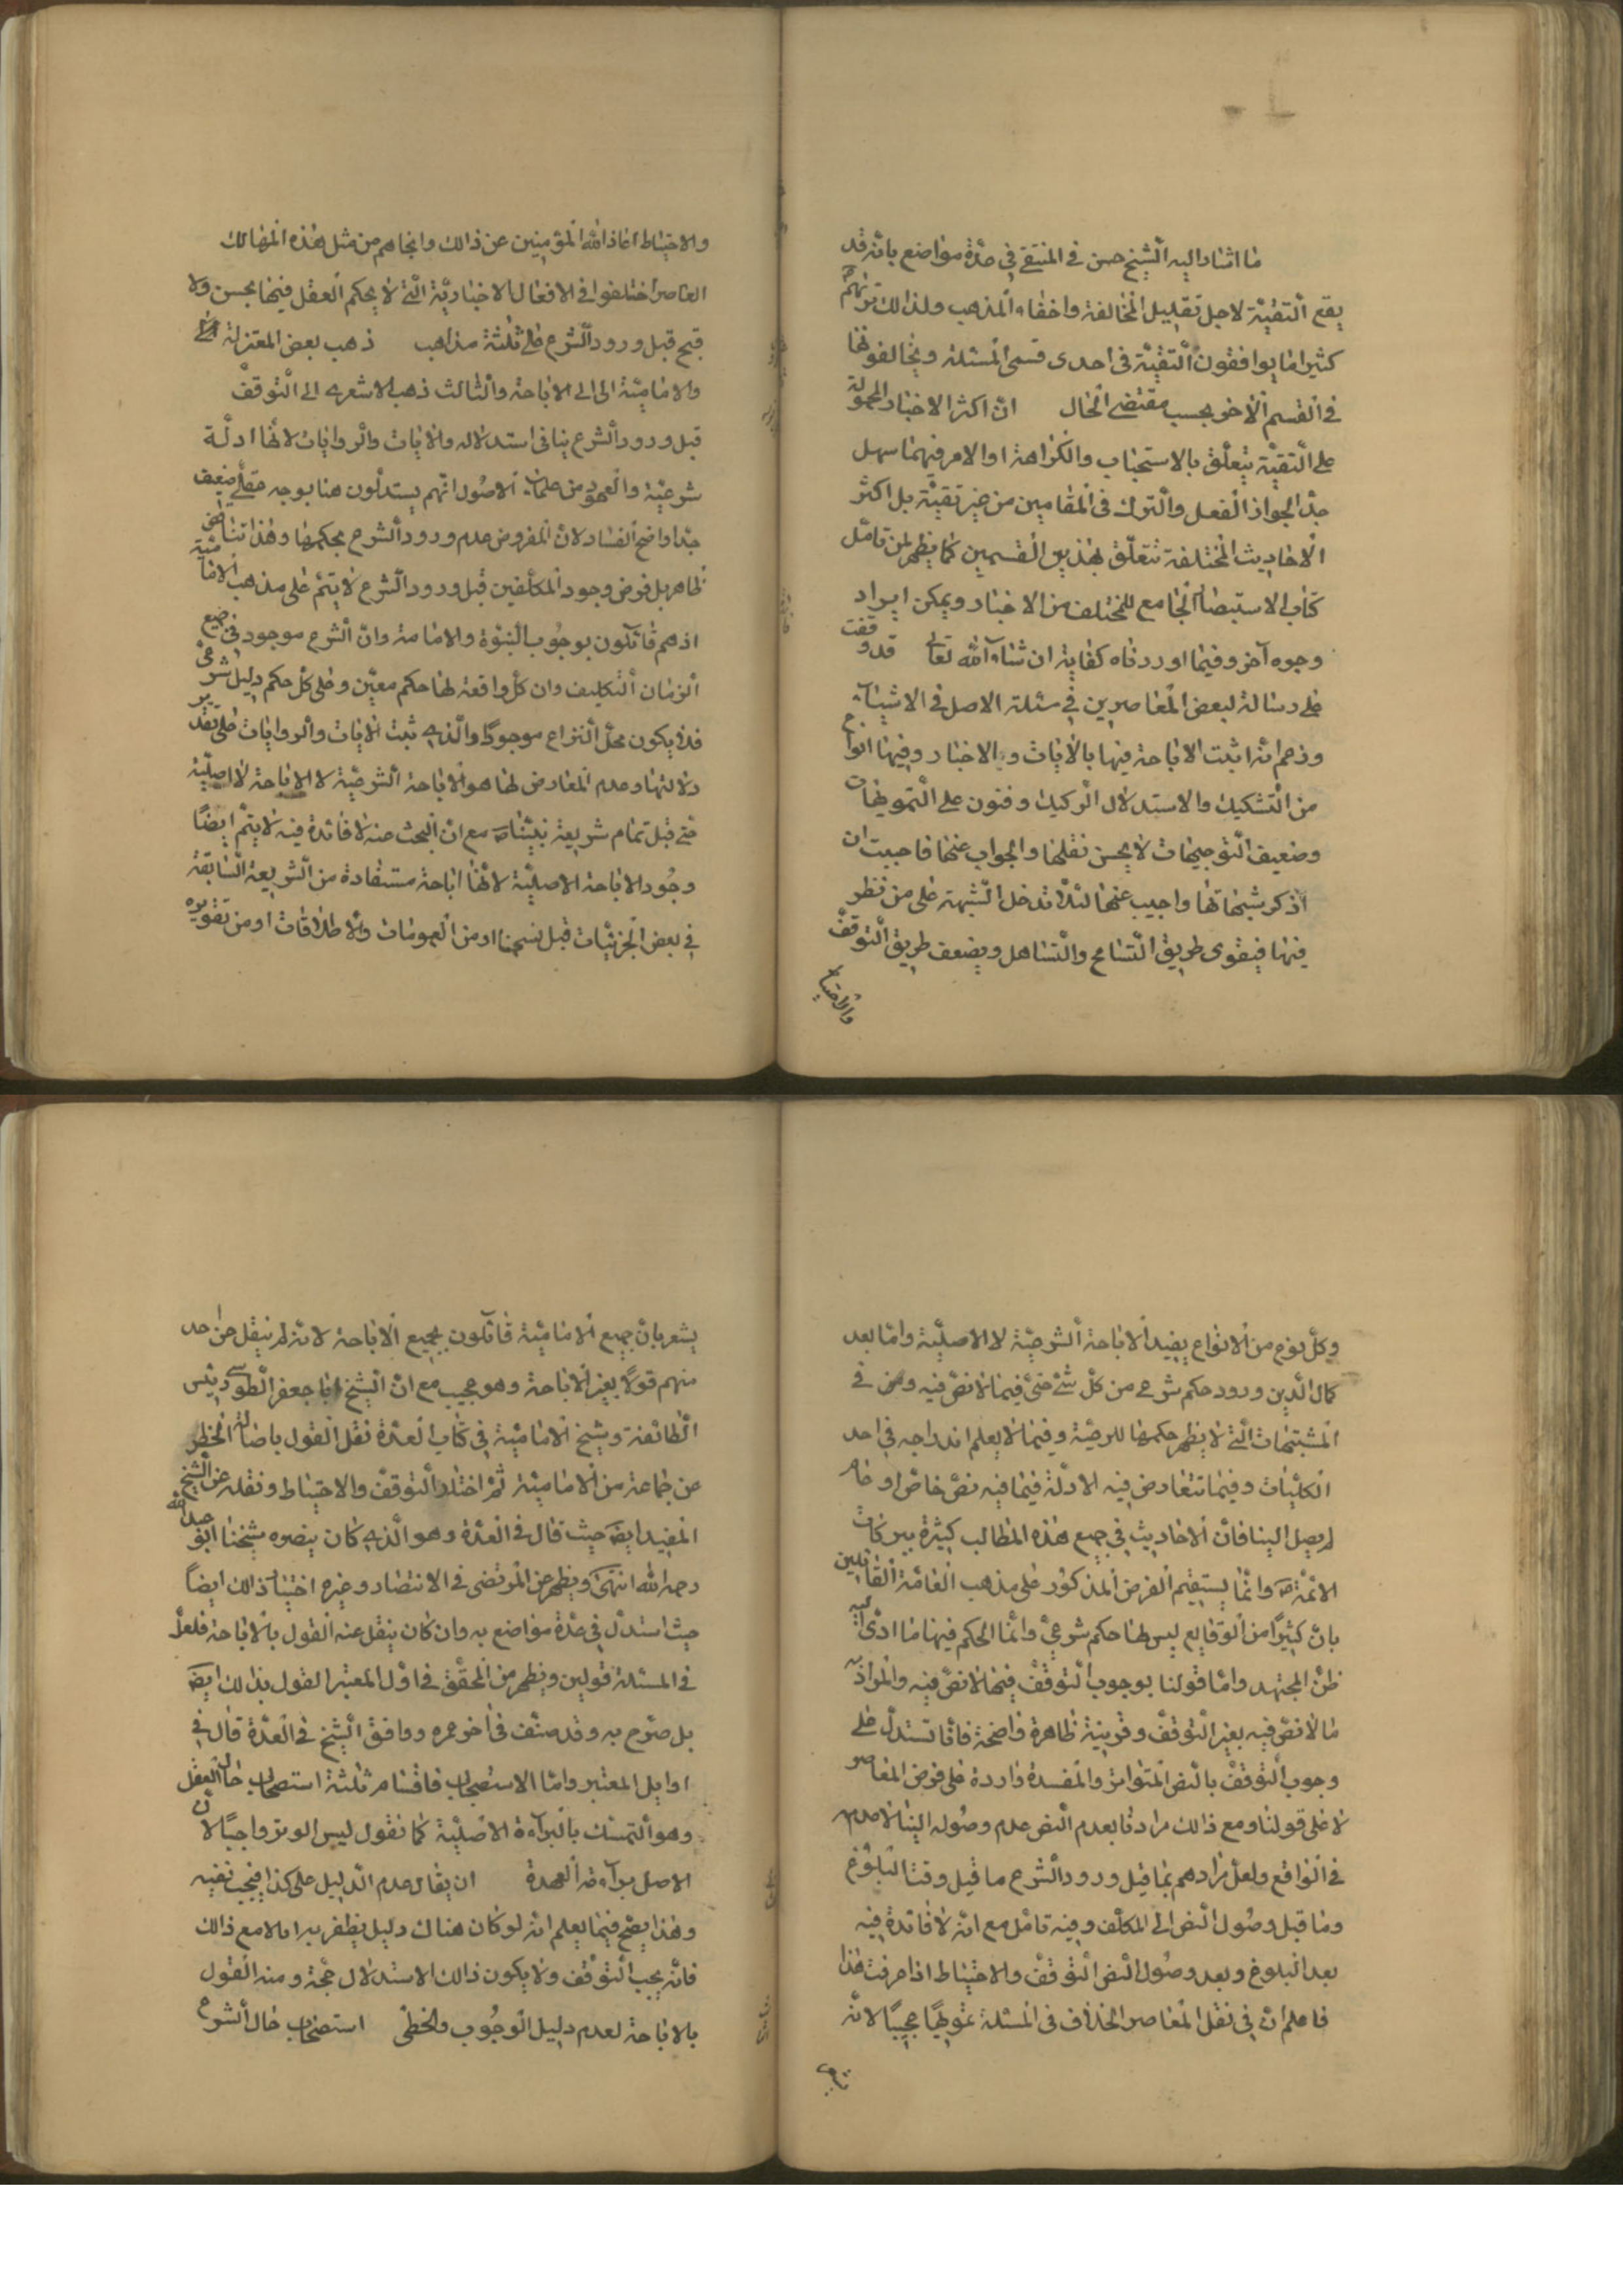 ما اشار اليه الشيخ حسن في المنتقى في عدة مواضع بانه قد
يقع التقية لاجل تقليل المخالفة واخفاء المذهب ولذلك تريهم
كثيرا ما يوافقون التقية في احدى قسمى المسئلة ويخالفونها
في القسم الاخر بحسب مقتضى الحال ان اكثر الاخبار المحمولة
على التقية يتعلق بالاستحباب والكراهة او الامر فيهما سهل
جدا لجواز الفعل والترك في المقامين من غير تقية بل اكثر
الاحاديث المختلفة تتعلق بهذين القسمين كما يظهر لمن تامل
كتاب الاستبصار الجامع للمختلف من الاخبار ويمكن ايراد
وجوه آخر وفيما اوردناه كفاية ان شاء الله تعالى قد وقفت
على رسالة لبعض المعاصرين في مسئلة الاصل في الاشياء
وزعم انه اثبت الاباحة فيها بالايات والاخبار وفيها انواع
من التشكيك والاستدلال الركيك وفنون على التمويهات
وضعيف التوجيهات لا يحسن نقلها والجواب عنها فاحببت ان
اذكر شبهاتها واجيب عنها لئلا تدخل الشبهة على من نظر
فيها فيقوى طريق التسامح والتساهل ويضعف طريق التوقف
والاحتياط
والاحتياط اعاذ الله المؤمنين عن ذالك وانجاهم من مثل هذه المهالك
المعاصر اختلفوا في الافعال الاختيارية التي لا يحكم العقل فيها بحسن ولا
قبح قبل ورود الشرع على ثلثة مذاهب ذهب بعض المعتزلة
والامامية الى الى الاباحة والثالث ذهب الاشعرى الى التوقف
قبل ورود الشرع ينافى استدلاله والايات والروايات لانها ادلة
شرعية والعهود من علماء الاصول انهم يستدلون هنا بوجه عقلى ضعيف
جدا واضح الفساد لان المفروض عدم ورود الشرع بحكمها وهذا تناقض
ظاهر بل فرض وجود المكلفين قبل ورود الشرع لا يتم على مذهب الامامية
اذ هم قائلون بوجوب النبوة والامامة وان الشرع موجود في جميع
الزمان التكليف وان كل واقعة لها حكم معين وعلى كل حكم دليل شرعى
فلا يكون محل النزاع موجودا والذى ثبت الايات والروايات على تقدير
دلالتها وعدم المعارض لها هو الاباحة الشرعية لا الاباحة الاصلية
حتى قبل تمام شريعة نبينا ص مع ان البحث عنه لا فائدة فيه لا يتم ايضا
وجود الاباحة الاصلية لانها اباحة مستفادة من الشريعة السابقة
في بعض الجزئيات قبل نسخها او من العمومات والاطلاقات او من تقويره
وكل نوع من الانواع يفيد الاباحة الشرعية لا الاصلية واما بعد
كمال الدين ورود حكم شرعى من كل شئ حتى فيما لا نص فيه وعن في
المشتبهات التي لا يظهر حكمها للرعية وفيما لا يعلم اندراجه في احد
الكليات وفيما تتعارض فيه الادلة فيما فيه نص خاص او عام
لم يصل الينا فان الاحاديث في جميع هذه المطالب كثيرة ببركات
الائمة ع وانما يستقيم الفرض المذكور على مذهب العامة القائلين
بان كثيرا من الوقايع ليس لها حكم شرعى وانما الحكم فيها ما ادى اليه
ظن المجتهد واما قولنا بوجوب التوقف فيها لا نص فيه والمراد به
ما لا نص فيه بغير التوقف وقرينية ظاهرة واضحة فانا نستدل على
وجوب التوقف بالنص المتواتر والمفسدة واردة على فرض المعاصر
لا على قولنا ومع ذالك مرادنا بعدم النص عدم وصوله الينا لا عدمه
في الواقع ولعل مرادهم بما قبل ورود الشرع ما قبل وقت البلوغ
وما قبل وصول النص الى المكلف وفيه تامل مع انه لا فائدة فيه
بعد البلوغ وبعد وصول النص التوقف والاحتياط اذا عرفت هذا
فاعلم ان في نقل المعاصر الخلاف في المسئلة تمويها عجيبا لانه
يشعر
يشعر بان جميع الامامية قائلون بجميع الاباحة لانه لم ينقل عن احد
منهم قولا بغير الاباحة وهو عجيب مع ان الشيخ ابا جعفر الطوسى رئيس
الطائفة وشيخ الامامية في كتاب العدة نقل القول باصالة الحظر
عن جماعة من الامامية ثم اختار التوقف والاحتياط ونقله عن الشيخ
المفيد ايضا حيث قال في العدة وهو الذى كان ينصره شيخنا ابو عبد الله
رحمه الله انتهى ويظهر عن المرتضى في الانتصار وغيره اختيار ذالك ايضا
حيث استدل في عدة مواضع به وان كان ينقل عنه القول بالاباحة فلعل
في المسئلة قولين ويظهر من المحقق في اول المعتبر القول بذالك ايضا
بل صرح به وقد صنف في اخر عمره ووافق الشيخ في العدة قال في
اوايل المعتبر واما الاستصحاب فاقسامه ثلثة استصحاب حال العقل
وهو التمسك بالبراءة الاصلية كما نقول ليس الوتر واجبا لان
الاصل براءة العهدة ان يقال عدم الدليل على كذا فيجب نفيه
وهذا يصح فيما يعلم انه لو كان هناك دليل يظفر به اما لا مع ذالك
فانه يجب التوقف ولا يكون ذالك الاستدلال حجة ومنه القول
بالاباحة لعدم دليل الوجوب والحظر استصحاب حال الشرع